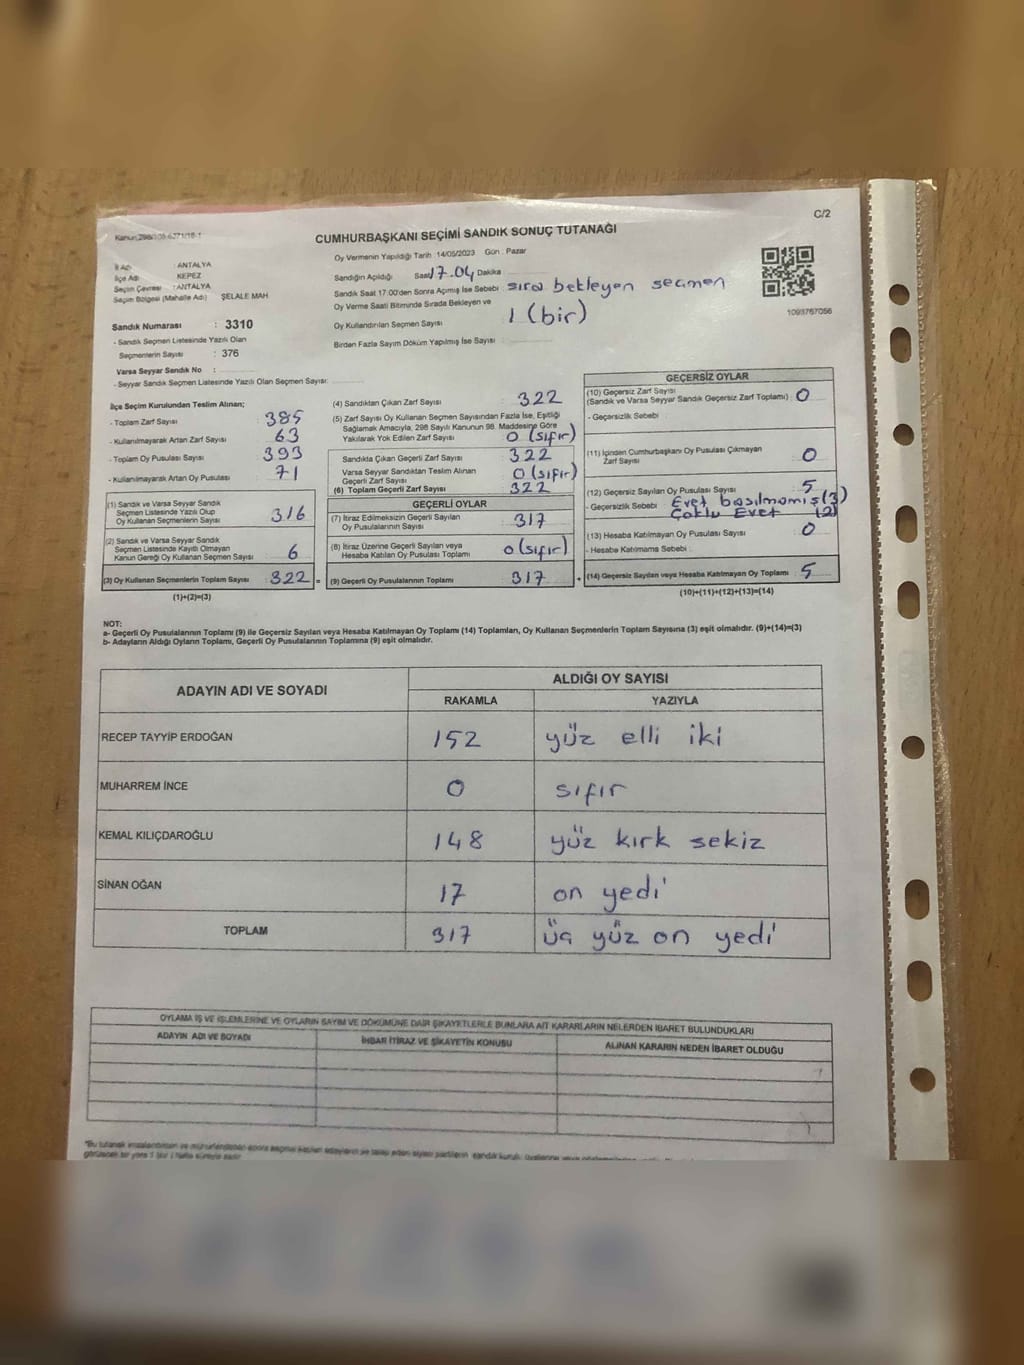 C/2
Kanun:298/108-6271/18-1
CUMHURBAŞKANI SEÇİMİ SANDIK SONUÇ TUTANAĞI
İl Adı : ANTALYA
İlçe Adı : KEPEZ
Seçim Çevresi : ANTALYA
Seçim Bölgesi (Mahalle Adı) ŞELALE MAH
Oy Vermenin Yapıldığı Tarih 14/05/2023 Gün : Pazar
Sandığın Açıldığı Saat 17.04 Dakika
Sandık Saat 17:00'den Sonra Açılmış İse Sebebi : sıra bekleyen seçmen
Oy Verme Saati Bitiminde Sırada Bekleyen ve
Oy Kullandırılan Seçmen Sayısı 1 (bir)
Birden Fazla Sayım Döküm Yapılmış İse Sayısı :
1093767056
Sandık Numarası : 3310
- Sandık Seçmen Listesinde Yazılı Olan
Seçmenlerin Sayısı : 376
Varsa Seyyar Sandık No :
- Seyyar Sandık Seçmen Listesinde Yazılı Olan Seçmen Sayısı:
İlçe Seçim Kurulundan Teslim Alınan;
- Toplam Zarf Sayısı 385
- Kullanılmayarak Artan Zarf Sayısı 63
- Toplam Oy Pusulası Sayısı 393
- Kullanılmayarak Artan Oy Pusulası 71
(1) Sandık ve Varsa Seyyar Sandık
Seçmen Listesinde Yazılı Olup
Oy Kullanan Seçmenlerin Sayısı 316
(2) Sandık ve Varsa Seyyar Sandık
Seçmen Listesinde Kayıtlı Olmayan
Kanun Gereği Oy Kullanan Seçmen Sayısı 6
(3) Oy Kullanan Seçmenlerin Toplam Sayısı : 322 =
(1)+(2)=(3)
(4) Sandıktan Çıkan Zarf Sayısı : 322
(5) Zarf Sayısı Oy Kullanan Seçmen Sayısından Fazla İse, Eşitliği
Sağlamak Amacıyla, 298 Sayılı Kanunun 98. Maddesine Göre
Yakılarak Yok Edilen Zarf Sayısı 0 (sıfır)
Sandıkta Çıkan Geçerli Zarf Sayısı 322
Varsa Seyyar Sandıktan Teslim Alınan
Geçerli Zarf Sayısı 0 (sıfır)
(6) Toplam Geçerli Zarf Sayısı 322
GEÇERLİ OYLAR
(7) İtiraz Edilmeksizin Geçerli Sayılan
Oy Pusulalarının Sayısı : 317
(8) İtiraz Üzerine Geçerli Sayılan veya
Hesaba Katılan Oy Pusulası Toplamı 0 (sıfır)
(9) Geçerli Oy Pusulalarının Toplamı 317 +
GEÇERSİZ OYLAR
(10) Geçersiz Zarf Sayısı
(Sandık ve Varsa Seyyar Sandık Geçersiz Zarf Toplamı) : 0
- Geçersizlik Sebebi
(11) İçinden Cumhurbaşkanı Oy Pusulası Çıkmayan
Zarf Sayısı 0
(12) Geçersiz Sayılan Oy Pusulası Sayısı : 5
- Geçersizlik Sebebi Evet basılmamış (3)
Çoklu Evet (2)
(13) Hesaba Katılmayan Oy Pusulası Sayısı : 0
- Hesaba Katılmama Sebebi
(14) Geçersiz Sayılan veya Hesaba Katılmayan Oy Toplamı : 5
(10)+(11)+(12)+(13)=(14)
NOT:
a- Geçerli Oy Pusulalarının Toplamı (9) ile Geçersiz Sayılan veya Hesaba Katılmayan Oy Toplamı (14) Toplamları, Oy Kullanan Seçmenlerin Toplam Sayısına (3) eşit olmalıdır. (9)+(14)=(3)
b- Adayların Aldığı Oyların Toplamı, Geçerli Oy Pusulalarının Toplamına (9) eşit olmalıdır.
ADAYIN ADI VE SOYADI
ALDIĞI OY SAYISI
RAKAMLA YAZIYLA
RECEP TAYYİP ERDOĞAN 152 yüz elli iki
MUHARREM İNCE 0 sıfır
KEMAL KILIÇDAROĞLU 148 yüz kırk sekiz
SİNAN OĞAN 17 on yedi
TOPLAM 317 üç yüz on yedi
OYLAMA İŞ VE İŞLEMLERİNE VE OYLARIN SAYIM VE DÖKÜMÜNE DAİR ŞİKAYETLERLE BUNLARA AİT KARARLARIN NELERDEN İBARET BULUNDUKLARI
ADAYIN ADI VE SOYADI İHBAR İTİRAZ VE ŞİKAYETİN KONUSU ALINAN KARARIN NEDEN İBARET OLDUĞU